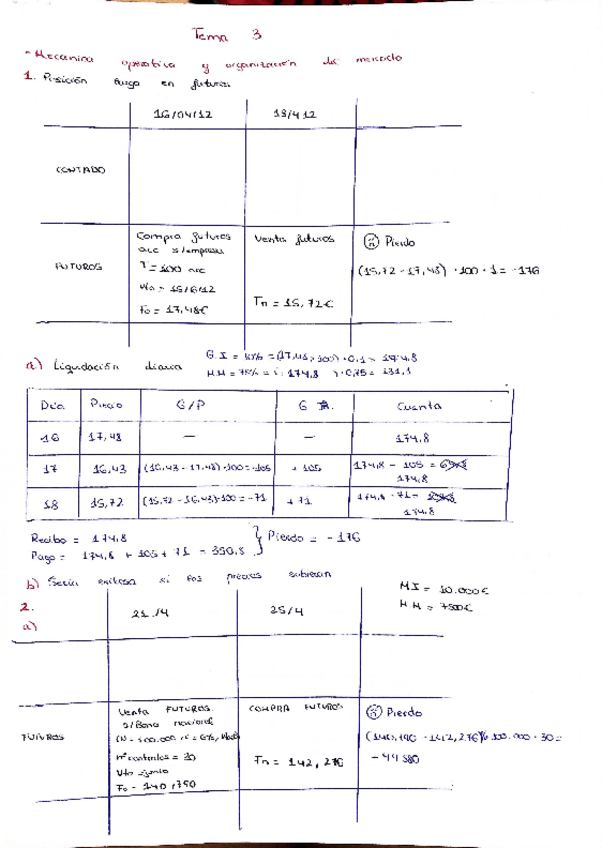 Tema 3
- Mecanica operativa y organización de mercado
1. Posición larga en futuros
16/04/12 18/4 12
CONTADO
FUTUROS
Compra futuros
acc s/empresa
T = 100 acc
Vto = 15/6/12
Fo = 17,48€
Venta futuros
Tn = 15,72€
Pierdo
(15,72 - 17,48) · 100 · 1 = -176
a) Liquidación diaria
G.I = 10% = (17,48 x 100) · 0,1 = 174,8
M.M = 75% = 174,8 · 0,75 = 131,1
Día Precio G/P G R. Cuenta
16 17,48 — — 174,8
17 16,43 (16,43 - 17,48) · 100 = -105 + 105 174,8 - 105 =
174,8
18 15,72 (15,72 - 16,43) · 100 = -71 + 71 174,8 - 71 =
174,8
Recibo = 174,8
Pago = 174,8 + 105 + 71 = 350,8
Pierdo = -176
b) Sería exitosa si los precios subieran
MI = 10.000€
MM = 7500€
2.
a)
21/4 25/4
FUTUROS
Venta FUTUROS
s/Bono nocional
nº contratos = 30
Vto = junio
Fo = 140,790
COMPRA FUTUROS
Tn = 142,276
Pierdo
- 44 580